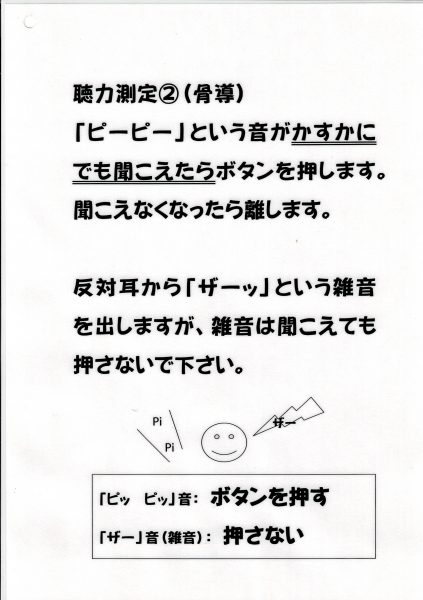 聴力測定②（骨導）
「ピーピー」という音がかすかに
でも聞こえたらボタンを押します。
聞こえなくなったら離します。
反対耳から「ザーッ」という雑音
を出しますが、雑音は聞こえても
押さないで下さい。
Pi
Pi
ザー
「ピッ　ピッ」音： ボタンを押す
「ザー」音（雑音）： 押さない